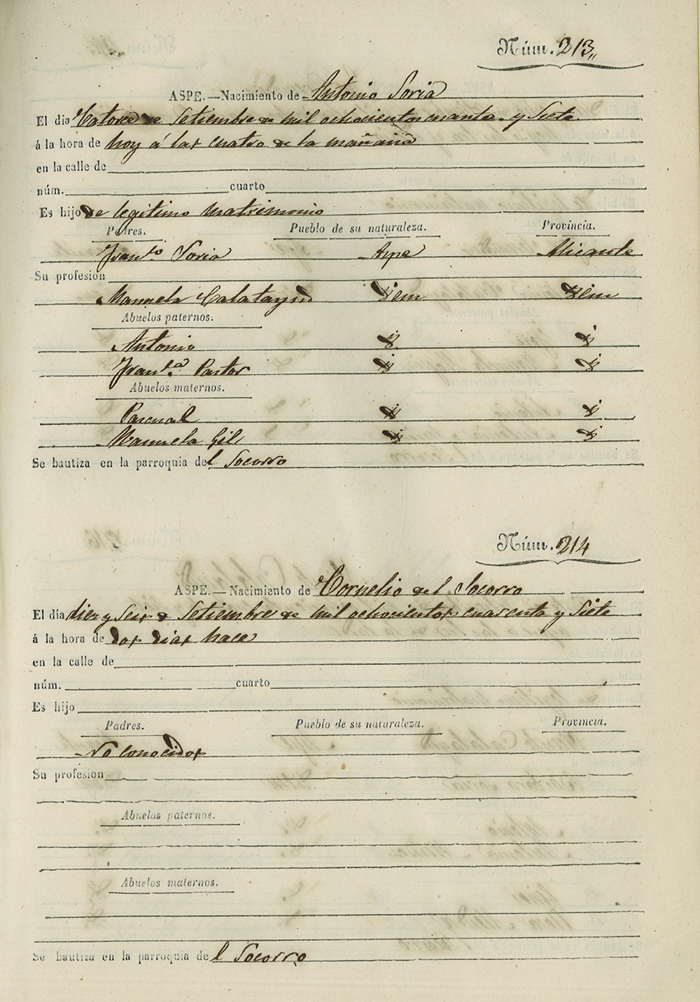 Núm. 213,,
ASPE.—Nacimiento de Antonio Soria
El día Catorce de Setiembre de mil ochocientos cuarenta y Siete
á la hora de hoy á las cuatro de la mañana
en la calle de
núm. cuarto
Es hijo de legitimo matrimonio
Padres. Pueblo de su naturaleza. Provincia.
Franco. Soria Aspe Alicante
Su profesion
Manuela Calatayud Idem Idem
Abuelos paternos.
Antonio id id
Franca. Pastor id id
Abuelos maternos.
Pascual id id
Manuela Gil id id
Se bautiza en la parroquia del Socorro
Núm. 214
ASPE.—Nacimiento de Cornelio del Socorro
El día diez y seis de Setiembre de mil ochocientos cuarenta y Siete
á la hora de dos dias hace
en la calle de
núm. cuarto
Es hijo
Padres. Pueblo de su naturaleza. Provincia.
No conocidos
Su profesion
Abuelos paternos.
Abuelos maternos.
Se bautiza en la parroquia del Socorro